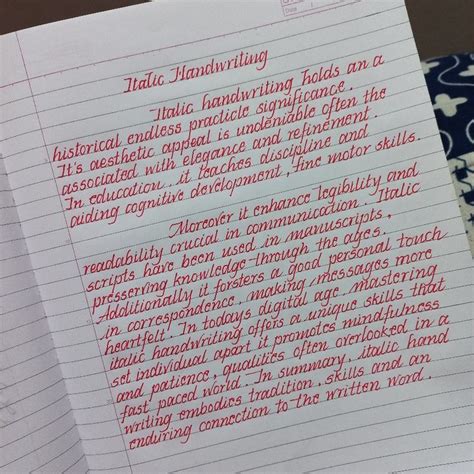 Italic Handwriting
Italic handwriting holds an a
historical endless practicle significance.
It's aesthetic appeal is undeniable often the
associated with elegance and refinement.
In education, it teaches discipline and
aiding cognitive development, fine motor skills.
Moreover it enhance legibility and
readability crucial in communication. Italic
scripts have been used in manuscripts,
presserving knowledge through the ages.
Additionally it forsters a good personal touch
in correspondence, making messages more
heartfelt. In todays digital age, mastering
italic handwriting offers a unique skills that
set individual apart it promotes mindfulness
and patience, qualities often overlooked in a
fast paced world. In summary, italic hand
writing embodies tradition, skills and an
enduring connection to the written word.